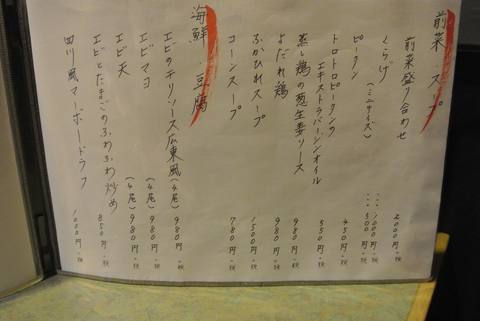 前菜 スープ
前菜盛り合わせ 2000円+税
くらげ …1000円+税
(ミニサイズ) …500円+税
ピータン 450円+税
トロトロピータンの
エキストラバージンオイル 550円+税
蒸し鶏の葱生姜ソース 980円+税
よだれ鶏 980円+税
ふかひれスープ 1500円+税
コーンスープ 780円+税
海鮮 豆腐
エビのチリソース広東風(4尾) 980円+税
エビマヨ (4尾) 980円+税
エビ天 (4尾) 980円+税
エビとたまごのふわふわ炒め 850円+税
四川風マーボードウフ 1000円+税